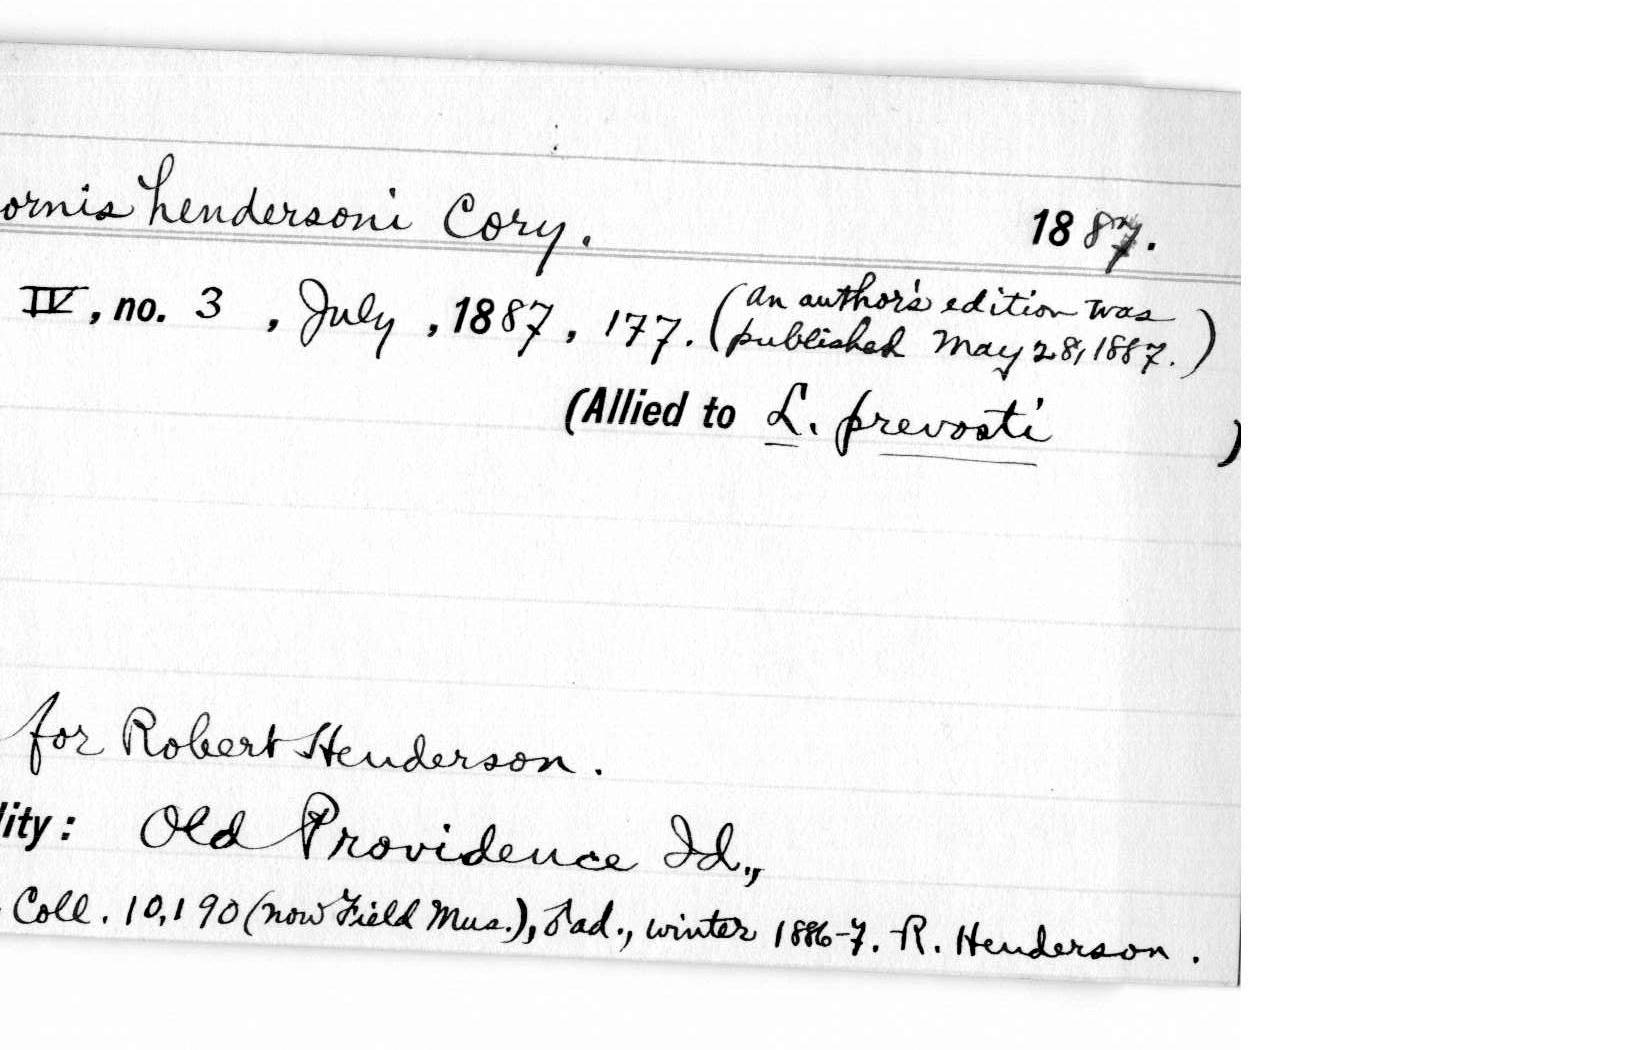 ornis hendersoni Cory. 1887.
IV, no. 3, July, 1887, 177. (An author's edition was
published May 28, 1887.)
(Allied to L. prevosti )
for Robert Henderson.
lity: Old Providence Id.,
Coll. 10,190 (now Field Mus.), ♂ ad., winter 1886-7. R. Henderson.